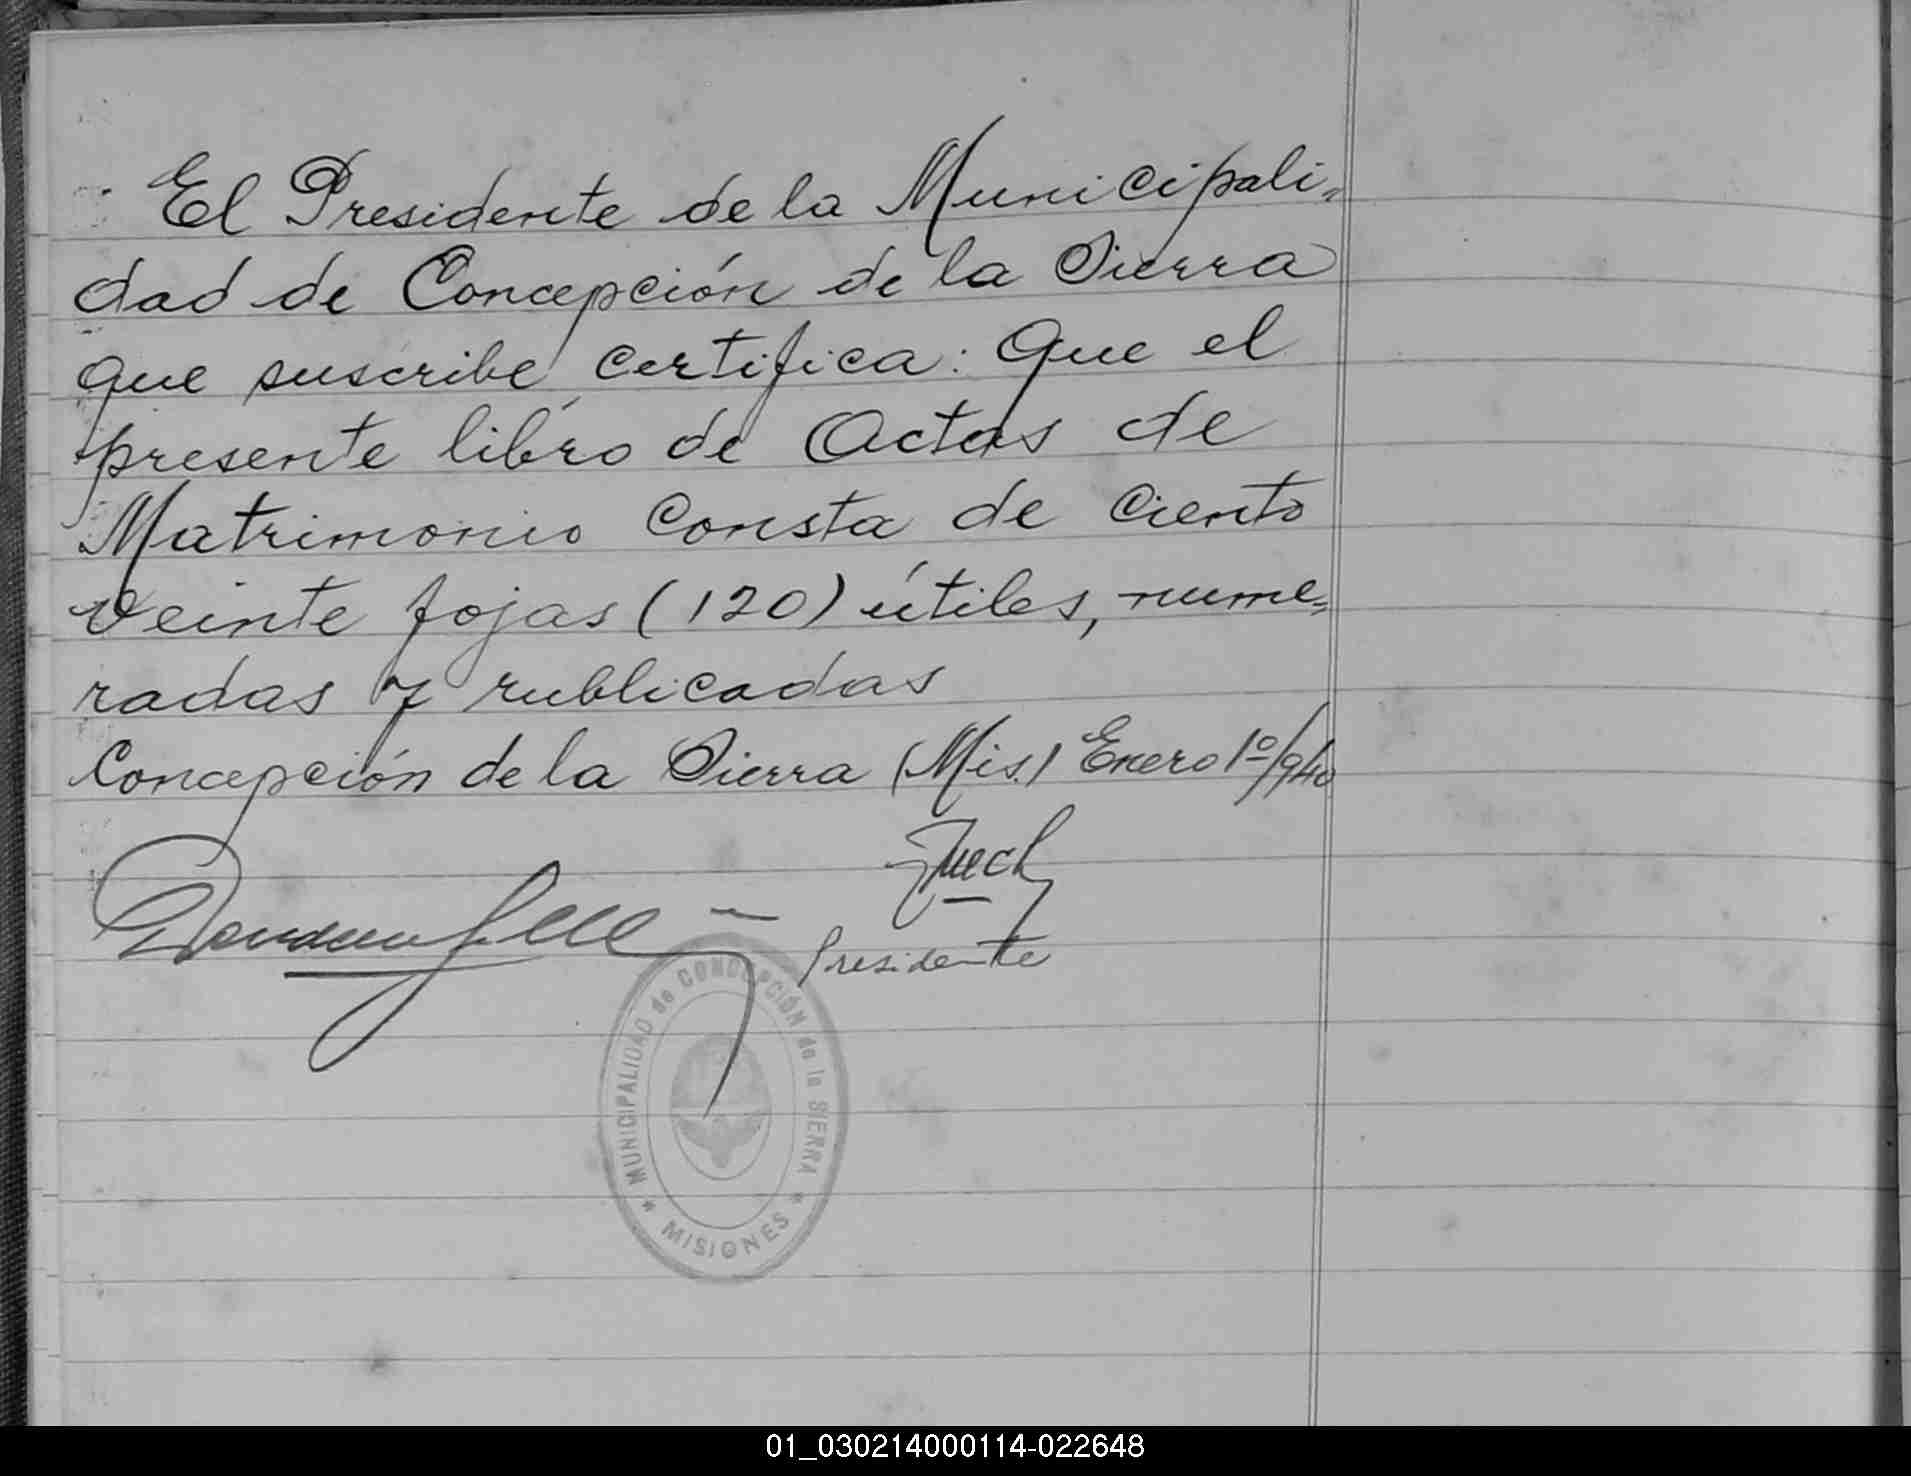 El Presidente de la Municipali=
dad de Concepción de la Sierra
que suscribe, certifica: Que el
presente libro de Actas de
Matrimonio Consta de Ciento
veinte fojas (120) útiles, nume=
radas y rublicadas
Concepción de la Sierra (Mis.) Enero 1º/940
Presidente
MUNICIPALIDAD de CONCEPCIÓN de la SIERRA
* MISIONES *
01_030214000114-022648